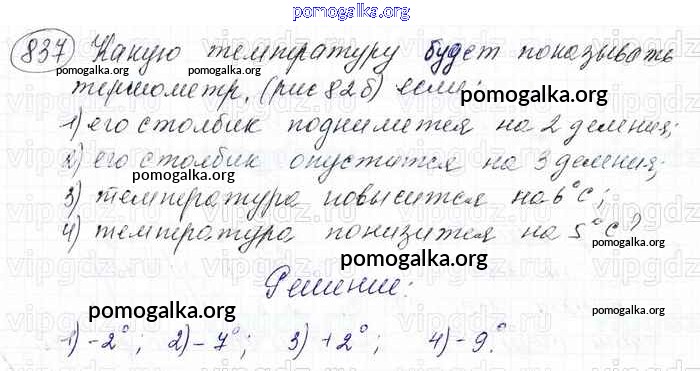 pomogalka.org
837 Какую температуру будет показывать
pomogalka.org pomogalka.org
термометр, (рис 82б) если:
pomogalka.org
1) его столбик поднимется на 2 деления;
2) его столбик опустится на 3 деления;
pomogalka.org
3) температура повысится на 6°С;
4) температура понизится на 5°С?
pomogalka.org
pomogalka.org
Решение:
pomogalka.org
1) -2°; 2) -7°; 3) +2°; 4) -9°.
pomogalka.org
pomogalka.org